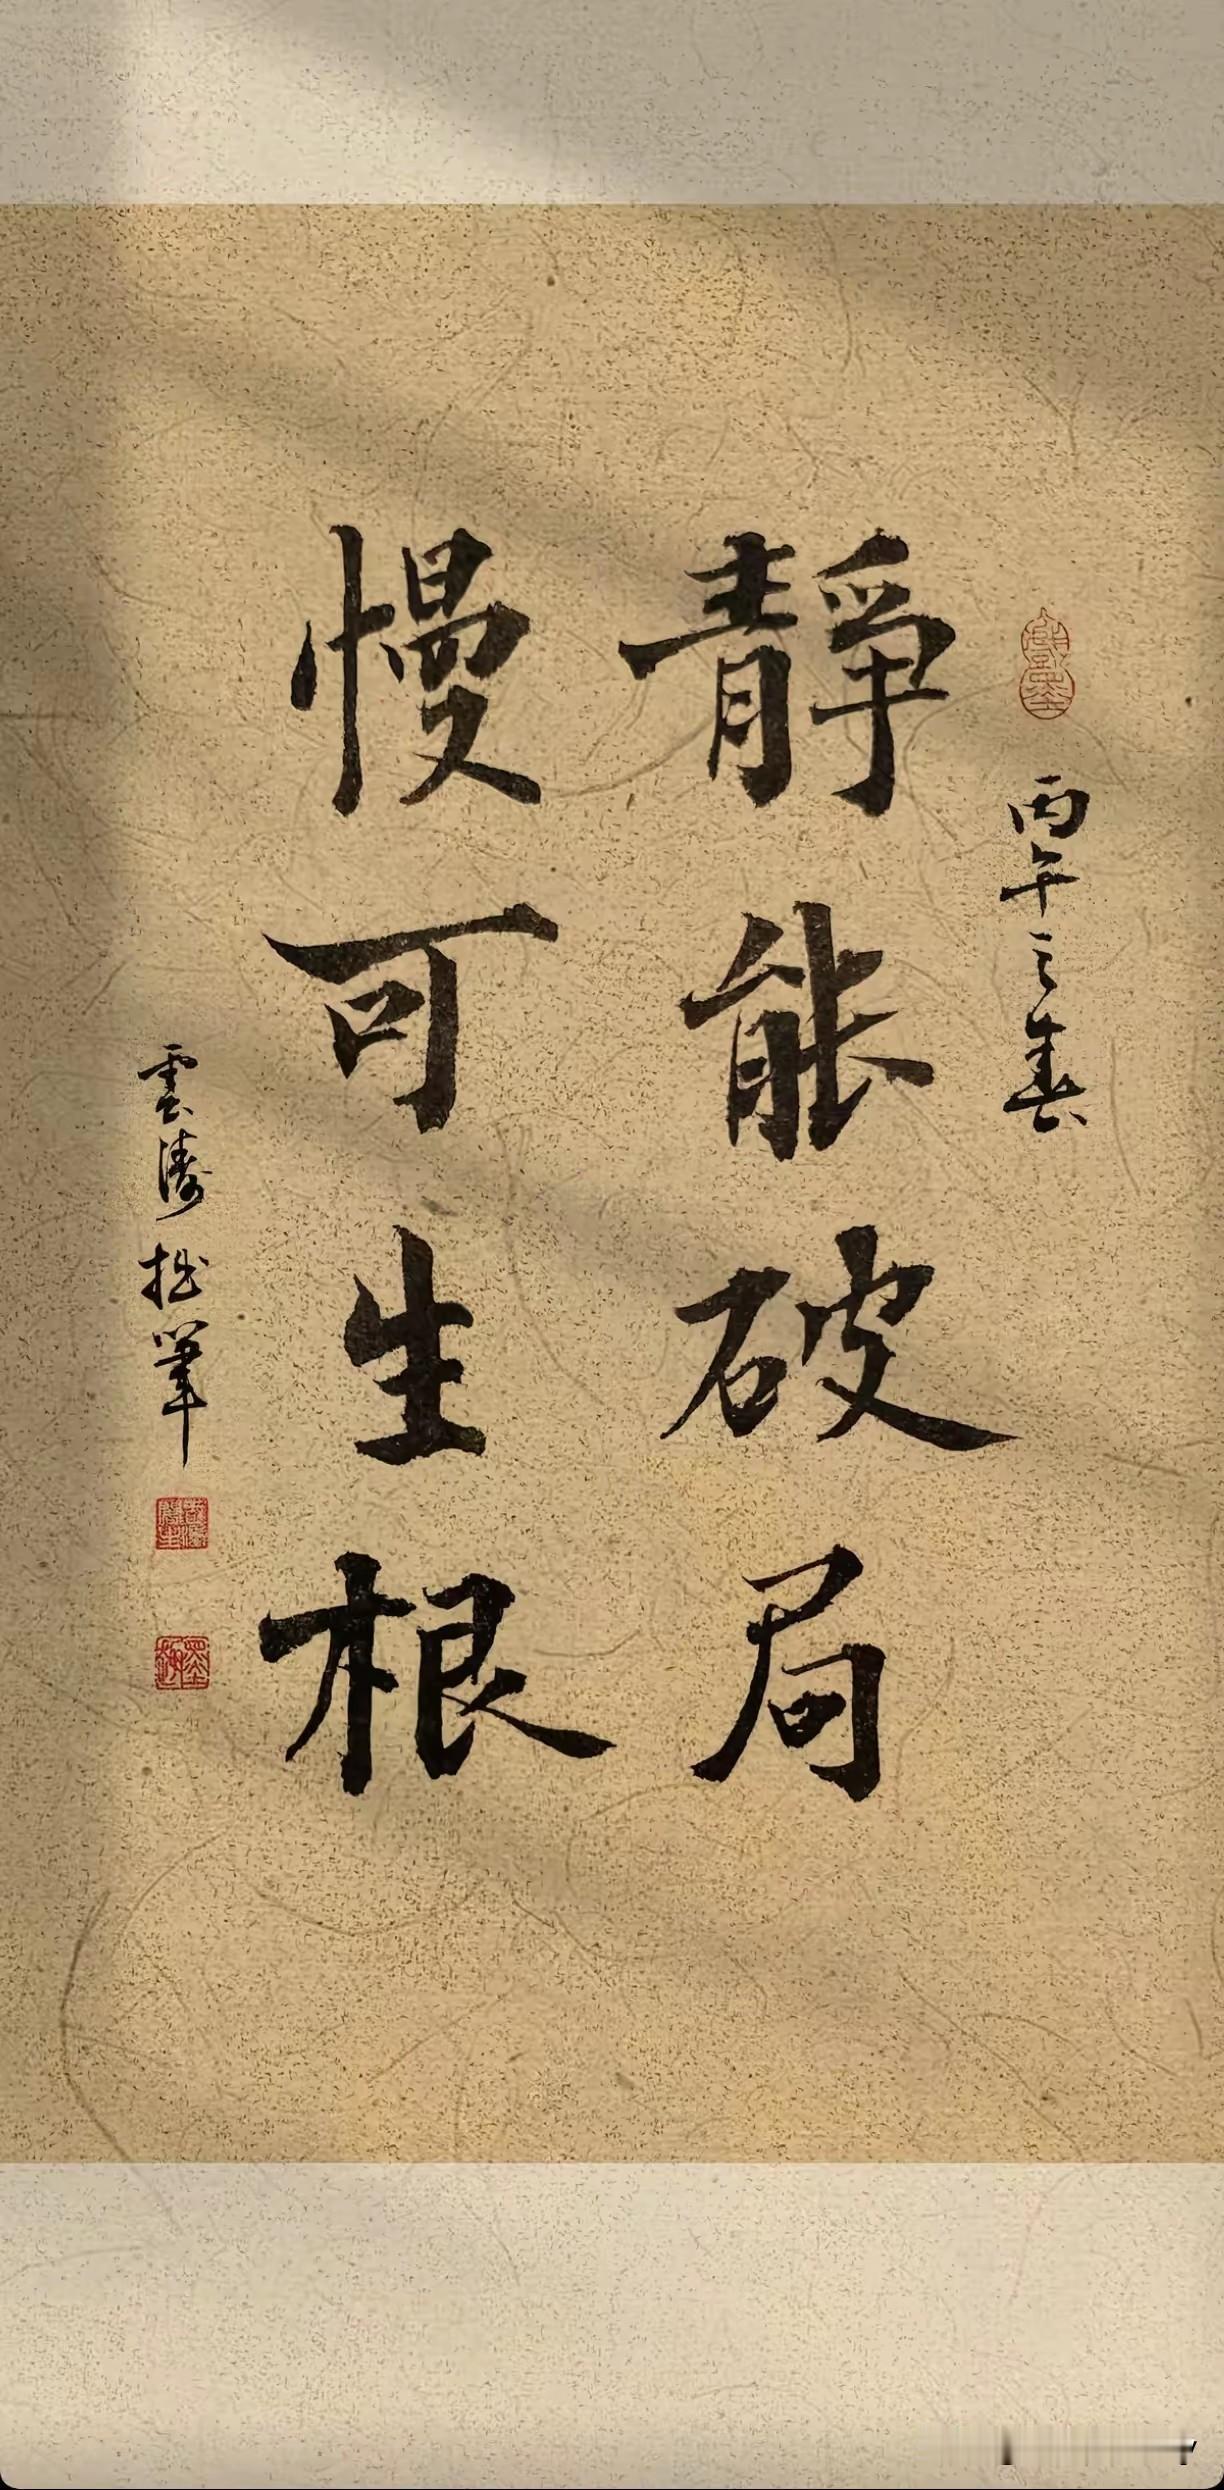 丙午之春
靜能破局
慢可生根
雲濤拙筆